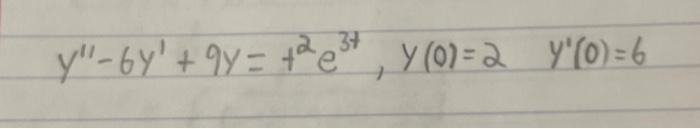 y"-6y' + 9y = t²e³ᵗ, y(0)=2 y'(0)=6